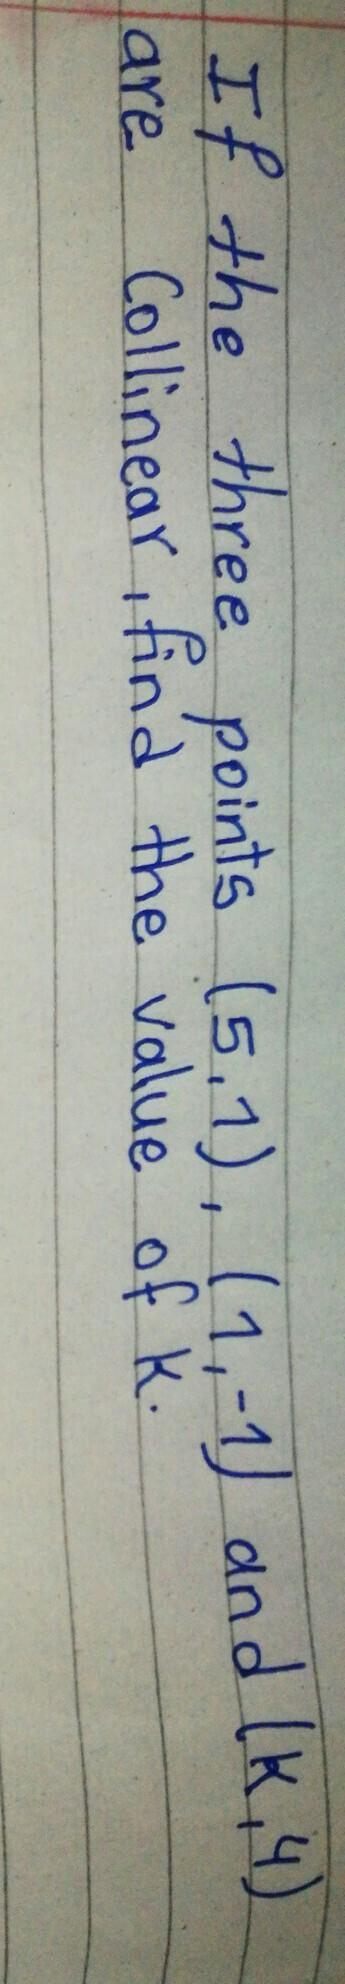 If the three points (5,1), (1,-1) and (k,4)
are Collinear, find the value of k.